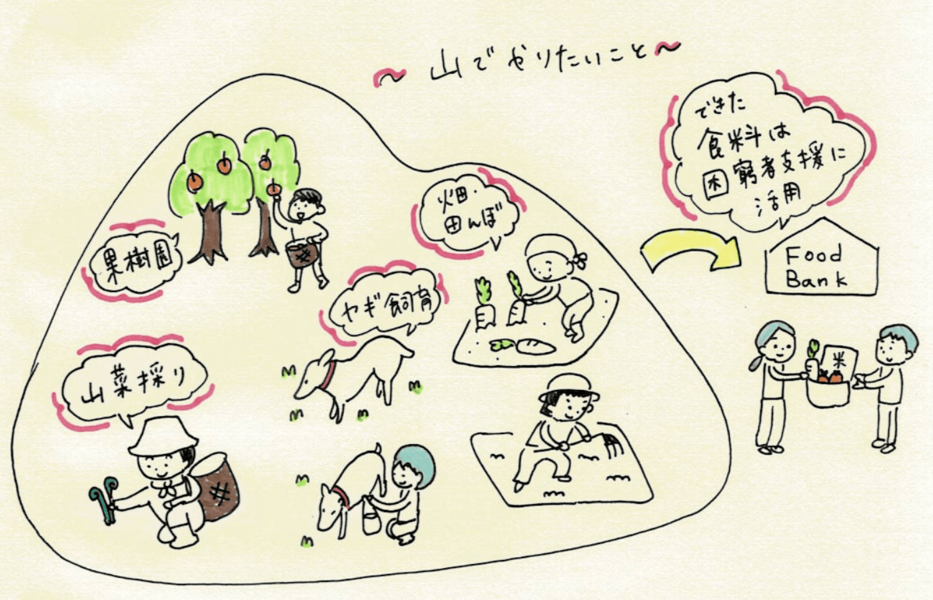 ～山でやりたいこと～
できた
食料は
困窮者支援に
活用
Food
Bank
米
畑・
田んぼ
果樹園
ヤギ飼育
山菜採り